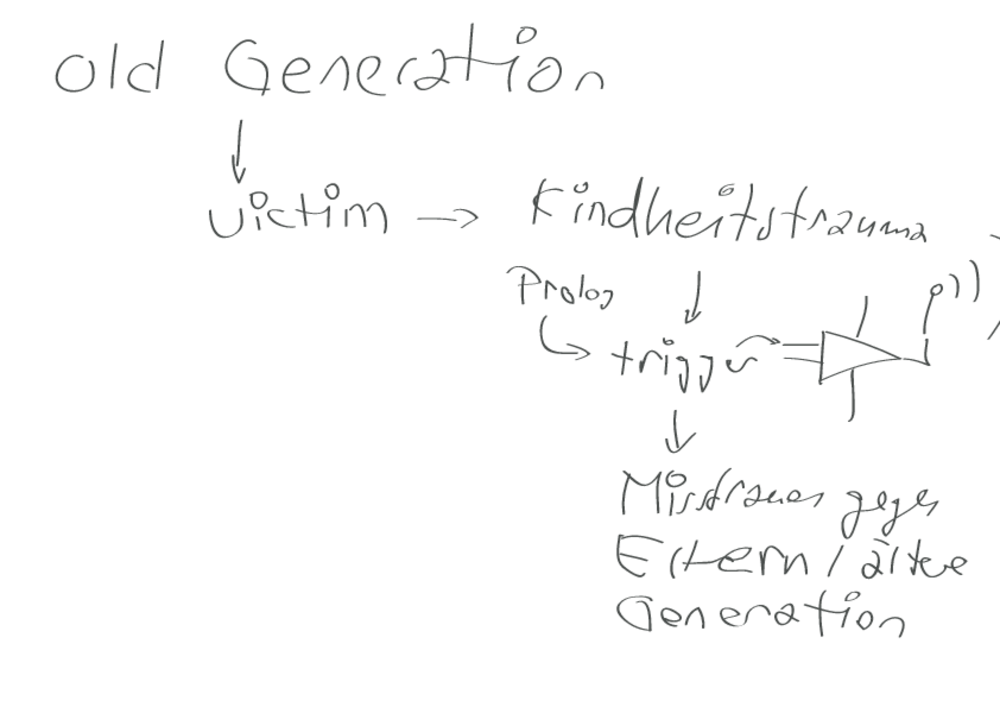 old Generation
↓
victim → Kindheitstrauma
Prolog ↓
↳ trigger
↓
Misstrauen gegen
Eltern / ältere
Generation